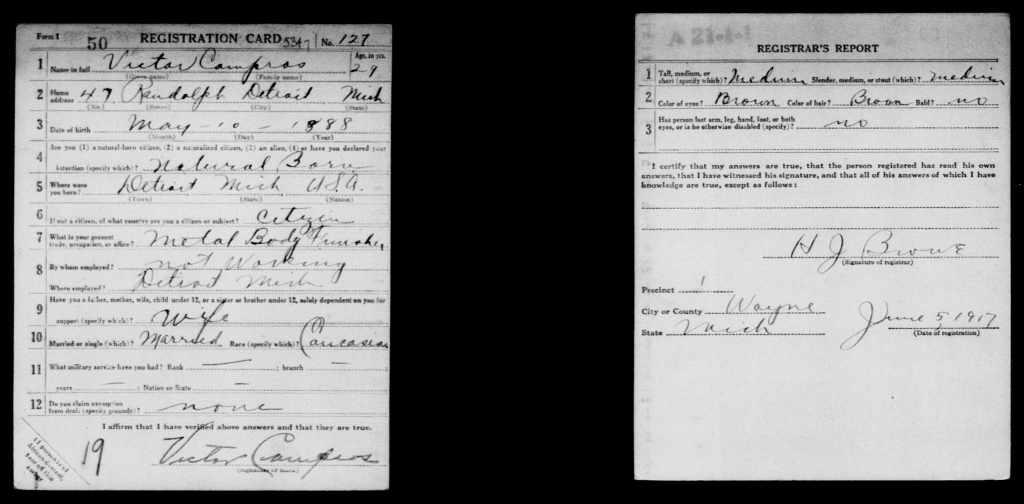 Form 1 50 REGISTRATION CARD 5347 No. 127
1 Name in full Victor Campros Age, in yrs. 29
(Given name) (Family name)
2 Home address 47 Randolph Detroit Mich
(No.) (Street) (City) (State)
3 Date of birth May - 10 - 1888
(Month) (Day) (Year)
4 Are you (1) a natural-born citizen, (2) a naturalized citizen, (3) an alien, (4) or have you declared your
intention (specify which)? Natural Born
5 Where were you born? Detroit Mich U.S.A.
(Town) (State) (Nation)
6 If not a citizen, of what country are you a citizen or subject? Citizen
7 What is your present trade, occupation, or office? Metal Body Finisher
8 By whom employed? not Working
Where employed? Detroit Mich
9 Have you a father, mother, wife, child under 12, or a sister or brother under 12, solely dependent on you for
support (specify which)? Wife
10 Married or single (which)? Married Race (specify which)? Caucasian
11 What military service have you had? Rank — ; branch —
years — ; Nation or State —
12 Do you claim exemption from draft (specify grounds)? none
I affirm that I have verified above answers and that they are true.
19 Victor Campros
(Signature or mark)
If person is of African descent, tear off this corner
A 21-1-1
REGISTRAR'S REPORT
1 Tall, medium, or short (specify which)? Medium Slender, medium, or stout (which)? medium
2 Color of eyes? Brown Color of hair? Brown Bald? no
3 Has person lost arm, leg, hand, foot, or both eyes, or is he otherwise disabled (specify)? no
I certify that my answers are true, that the person registered has read his own
answers, that I have witnessed his signature, and that all of his answers of which I have
knowledge are true, except as follows:
H J
(Signature of registrar)
Precinct 1
City or County Wayne
State Mich June 5, 1917
(Date of registration)